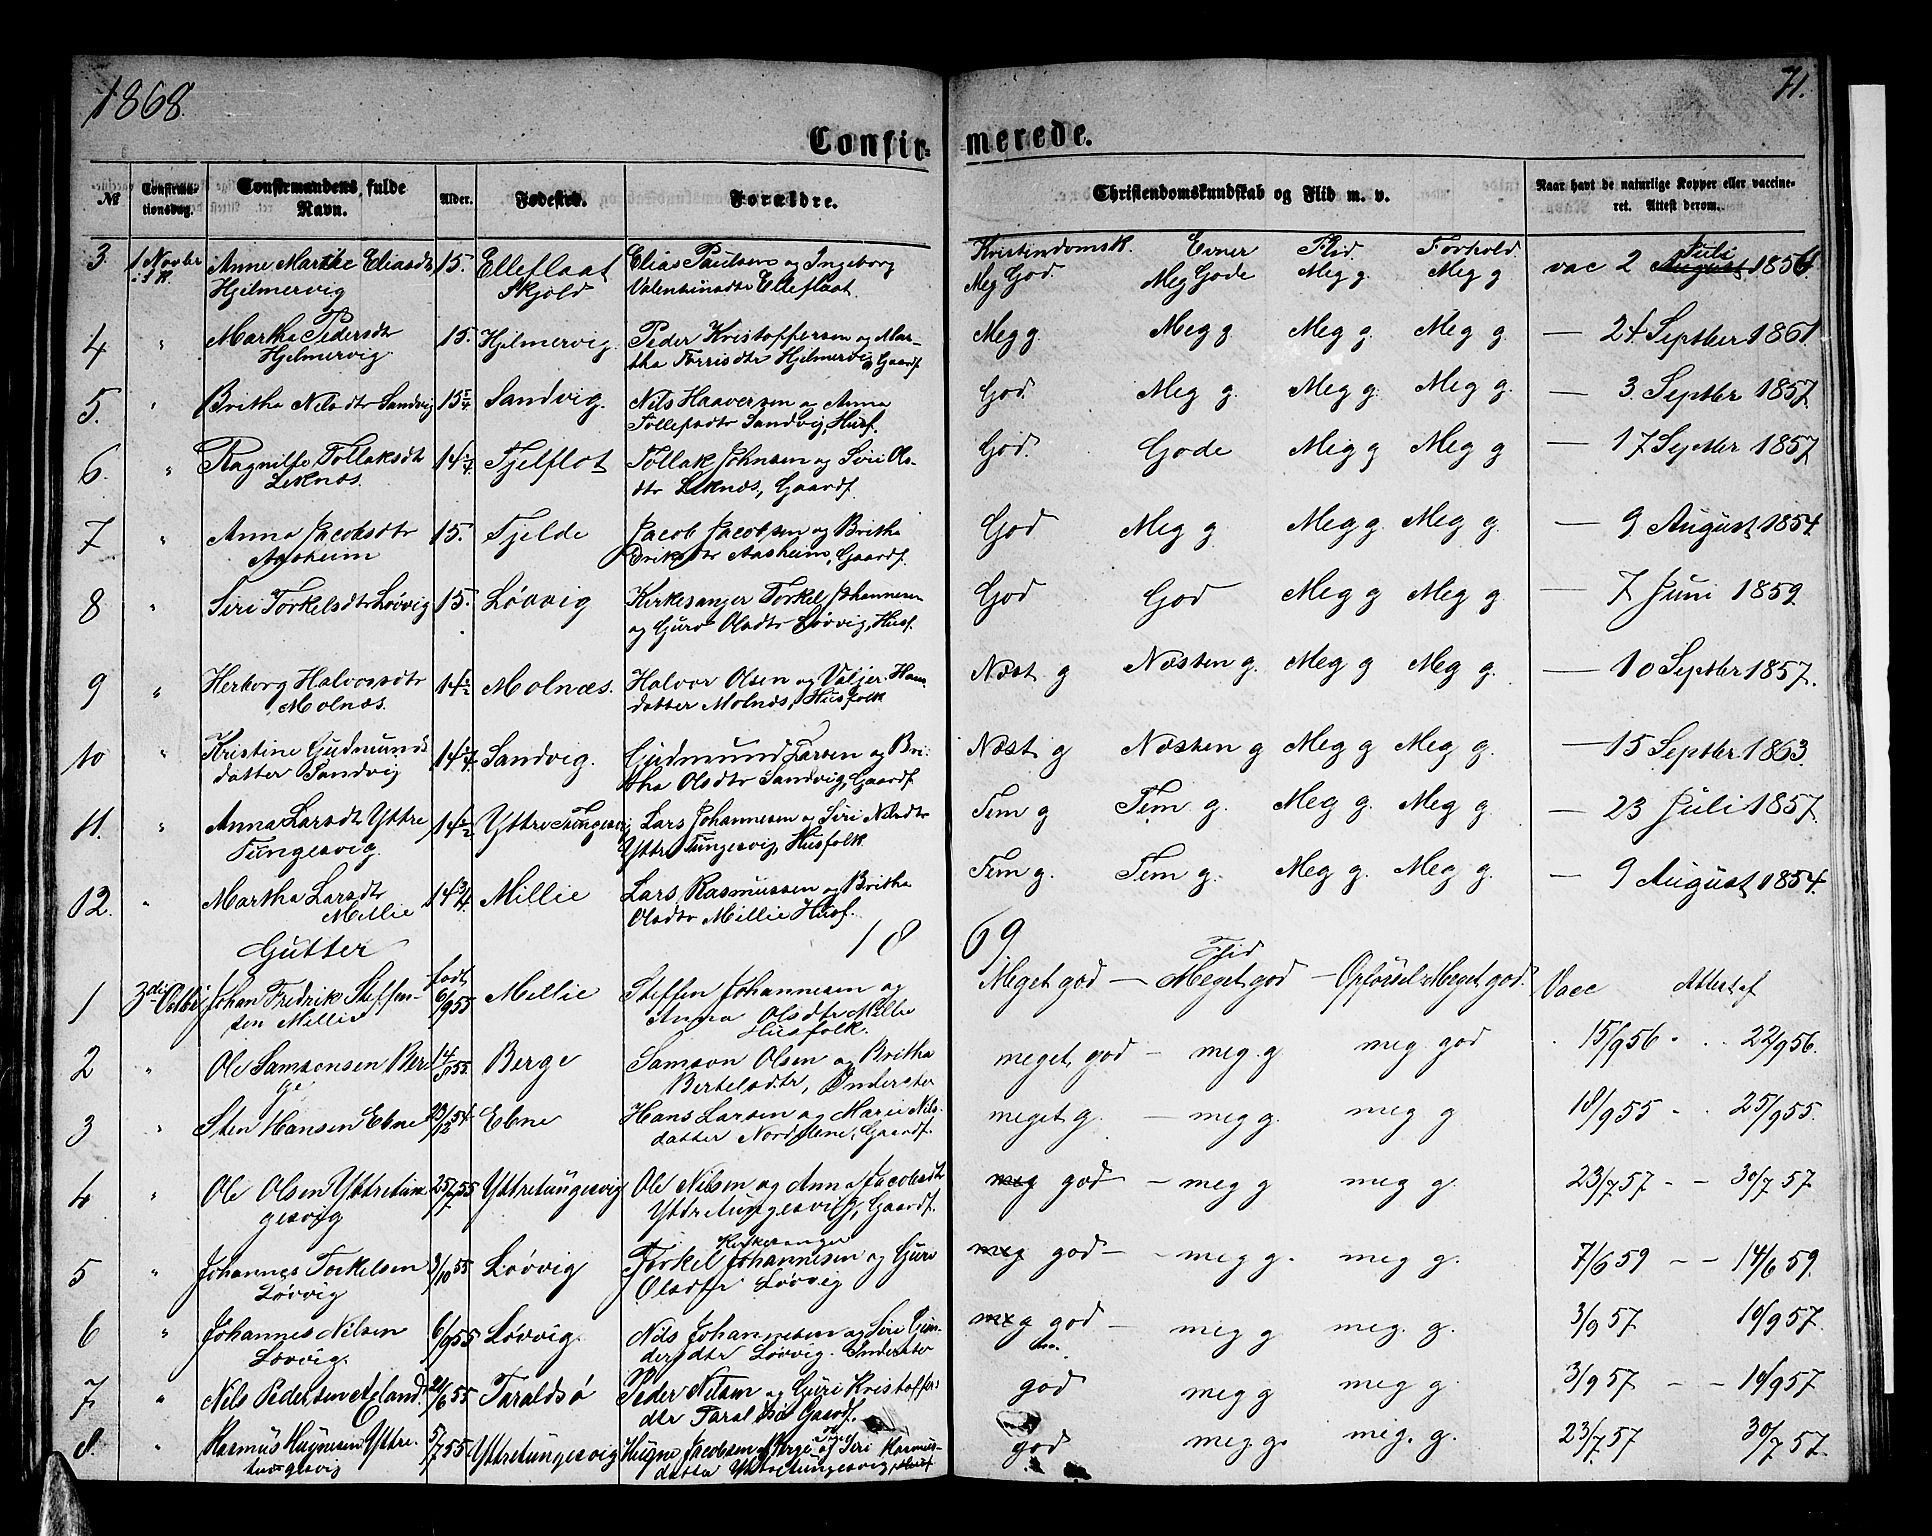 1868.
71.
Confir-
merede.
№
Confirma-
tionsdag.
Confirmandens fulde
Navn.
Alder.
Fødested.
Forældre.
Christendomskundskab og Flid m. v.
Naar havt de naturlige Kopper eller vaccine-
ret. Attest derom.
Kristindomsk. Evner Flid. Forhold
3 1 Novbr Anne Marthe Eliasdtr 15. Elleflaat Elias Paulsen og Ingeborg Meg God Meg Gode Meg g. Meg g vac 2 Juli August 1856
i S K. Hjelmervig Skjold Valentinsdtr Elleflaat.
4 " Martha Pedersdtr 15. Hjelmervig. Peder Kristoffersen og Mar- Meg g. Meg g Meg g Meg g — 24 Septber 1861
Hjelmervig. tha Torrisdtr Hjelmervig Gaardf
5. " Britha Nilsdtr Sandvig 15 1/4 Sandvig. Nils Haaversen og Anna God. Meg g. Meg g. Meg g. — 3 Septbr 1857.
Tollefsdtr Sandvig, Husf.
6. " Ragnilde Tollaksdtr 14 1/4 Fjelflot Tollak Johnsen og Siri Ols- God. Gode Meg g Meg g — 17 Septbr 1857
Leknæs. dtr Leknæs, Gaardf.
7 " Anna Jacobsdtr 15. Fjelde Jacob Jacobsen og Britha God Meg g. Meg g. Meg g — 9 August 1854.
Aasheim Eriksdtr Aasheim, Gaardf.
8 " Siri Torkelsdtr Løvvig 15. Løvvig Kirkesanger Torkel Johannesen God God Meg g Meg g. — 7 Juni 1859
og Guro Olsdtr Løvvig, Husf.
9 " Herborg Halvorsdtr 14 1/2 Molnæs. Halvor Olsen og Valjer Hans Næst g Næsten g. Meg g Meg g. — 10 Septbr 1857.
Molnæs. datter Molnæs, Husfolk
10 " Kristine Gudmunds 14 1/4 Sandvig. Gudmund Larsen og Bri- Næst g Næsten g Meg g Meg g. — 15 Septbr. 1863.
datter Sandvig tha Olsdtr Sandvig, Gaardf
11. " Anna Larsdtr Yttre 14 1/2 Yttre Tungesvig Lars Johannesen og Siri Nilsdtr Tem g Tem g. Meg g. Meg g — 23 Juli 1857.
Tungesvig. Yttre Tungesvig, Husfolk.
12. " Martha Larsdtr 14 3/4 Millie Lars Rasmussen og Britha Tem g. Tem g. Meg g. Meg g. — 9 August 1854.
Millie Olsdtr Millie Husf.
Gutter 18 69
Flid
1 3die Octbr Johan Fredrik Steffen- Født 6/9 55 Millie Steffen Johannesen og Meget god — Meget god — Opførsel Meget god. Vacc Attest af
sen Millie Anna Olsdtr Millie
Husfolk.
2 " Ole Samsonsen Ber- 14/9 55 Berge Samson Olsen og Britha meget god — meg. g meg. god 15/9 56 . . . 22/9 56.
ge Bertelsdtr, Inderster
3 " Sten Hansen Ebne 23/12 54 Ebne Hans Larsen og Marie Nils- meget g. — meg g. meg g 18/9 55 - . 25/9 55.
datter Gaardf.
4 " Ole Olsen Yttretun 25/7 55 Yttretungesvig Ole Nilsen og Anna Jacobsdtr meg god — meg g meg g. 23/7 57 - - 30/7 57
gesvig Yttretungesvig, Gaardf.
Kirkesanger
5 " Johannes Torkelsen 3/10 55 Løvvig Torkel Johannesen og Guro meg god — - meg g. meg g. 7/6 59 - - 14/6 59.
Løvvig Olsdtr Løvvig
6 " Johannes Nilsen 6/9 55 Løvvig. Nils Johannesen og Siri meg god — meg g meg. g. 3/9 57. 10/9 57.
Løvvig. Løvvig. Inderster
7 " Nils Pedersen Aeland 21/6 55 Taraldsø Peder Nilsen og Guri Kristoffers god meg g meg g. 3/9 57 - - 10/9 57.
dtr Taraldsø Gaardf.
8. " Rasmus Hugnesen Yttre- 5/7 55 Yttretungesvig Hugne Jacobsen og Siri Rasmus- god meg g. meg. g. 23/7 57 30/7 57.
tungesvig datter Yttretungesvig, Husf